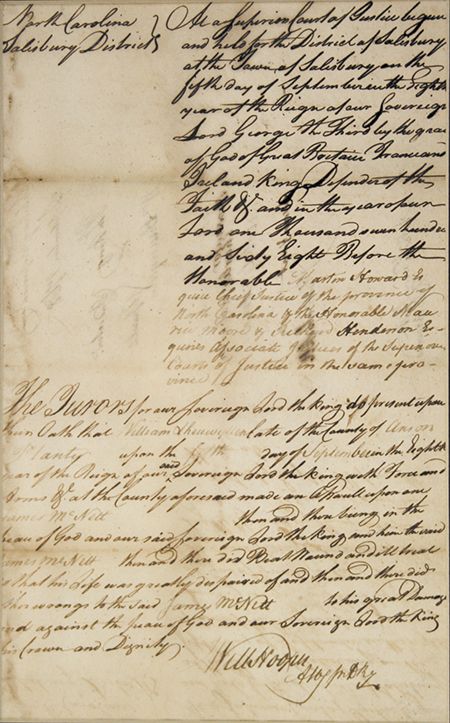 North Carolina
Salisbury District
At a Superior Court of Justice begun
and held for the District of Salisbury
at the Town of Salisbury on the
fifth day of September in the Eighth
year of the Reign of our Sovereign
Lord George the Third by the grace
of God of Great Britain France and
Ireland King Defender of the
Faith & and in the year of our
Lord one Thousand seven hundred
and Sixty Eight Before the
Honorable Martin Howard Es
quire Chief Justice of the province of
North Carolina & the Honorable Mau
rice Moore & Richard Henderson Es-
quires Associate Justices of the Superior
Courts of Justice in the same pro-
vince
The Jurors for our Sovereign Lord the King do present upon
their Oath that William late of the County of Anson
upon the fifth day of September in the Eighth
year of the Reign of our said Sovereign Lord the King with Force and
Arms & at the County aforesaid made an Assault upon one
James McNitt then and there being in the
peace of God and our said Sovereign Lord the King and him the said
James McNitt then and there did Beat Wound and ill treat
so that his Life was greatly despaired of and then and there did
other wrongs to the said James McNitt to his great Damage
and against the peace of God and our Sovereign Lord the King
his Crown and Dignity.
Will Hooper